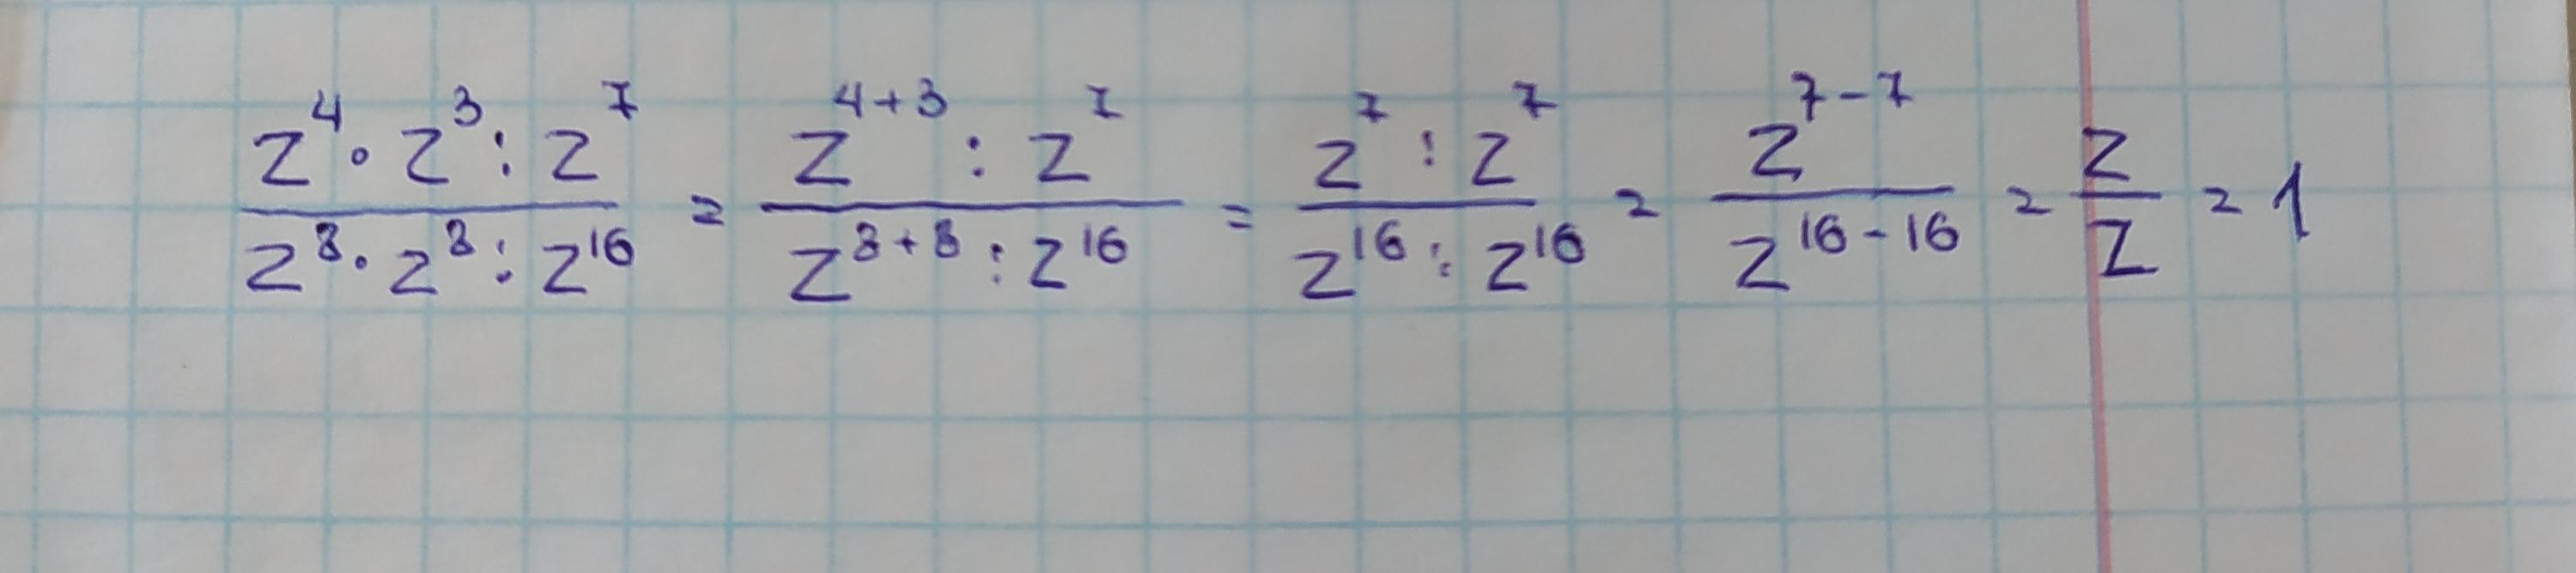 $\frac{z^4 \cdot z^3 : z^7}{z^8 \cdot z^8 : z^{16}} = \frac{z^{4+3} : z^7}{z^{8+8} : z^{16}} = \frac{z^7 : z^7}{z^{16} : z^{16}} = \frac{z^{7-7}}{z^{16-16}} = \frac{z}{z} = 1$